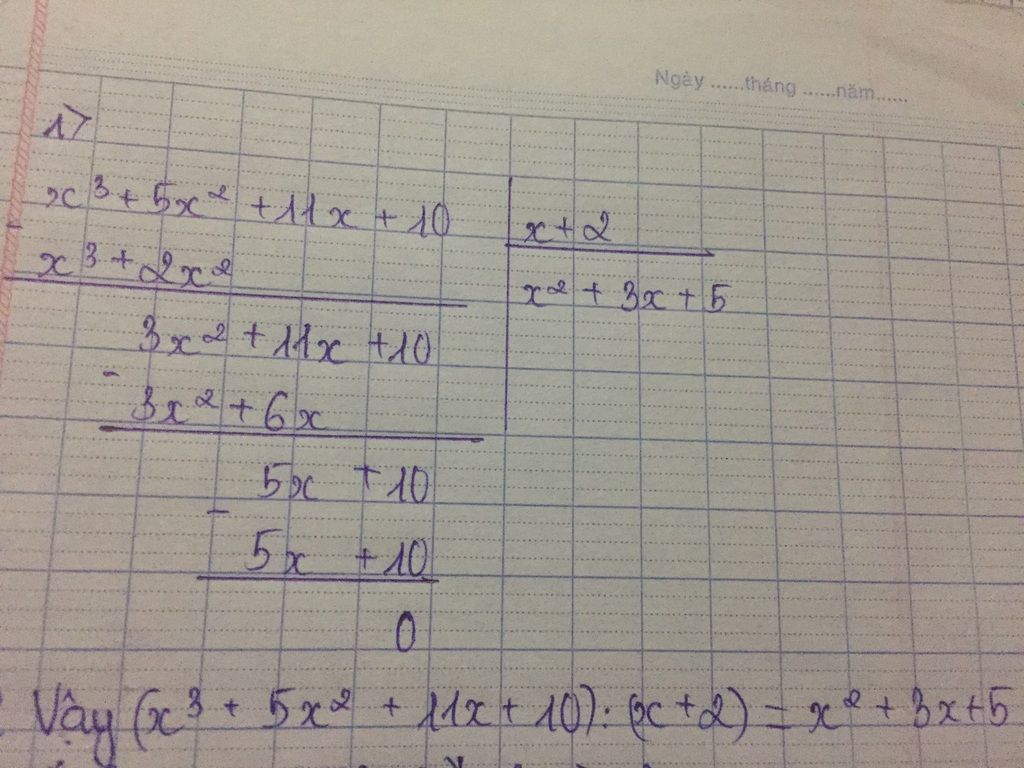 Ngày ......tháng ......năm......
1>
x³ + 5x² + 11x + 10 | x + 2
- x³ + 2x² | x² + 3x + 5
3x² + 11x + 10
- 3x² + 6x
5x + 10
- 5x + 10
0
Vậy (x³ + 5x² + 11x + 10) : (x + 2) = x² + 3x + 5